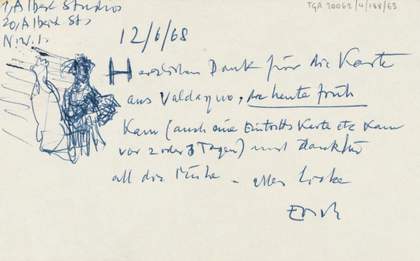 1, Albert Studios
20, Albert St,
N.W.1.
TGA 20063/4/168/63
12/6/68
Herzlichen Dank für die Karte
aus, die heute früh
kam (auch eine Eintritts Karte etc kam
vor 2 oder 3 Tagen) und Dank für
all die Mühe - alles Liebe
Erich